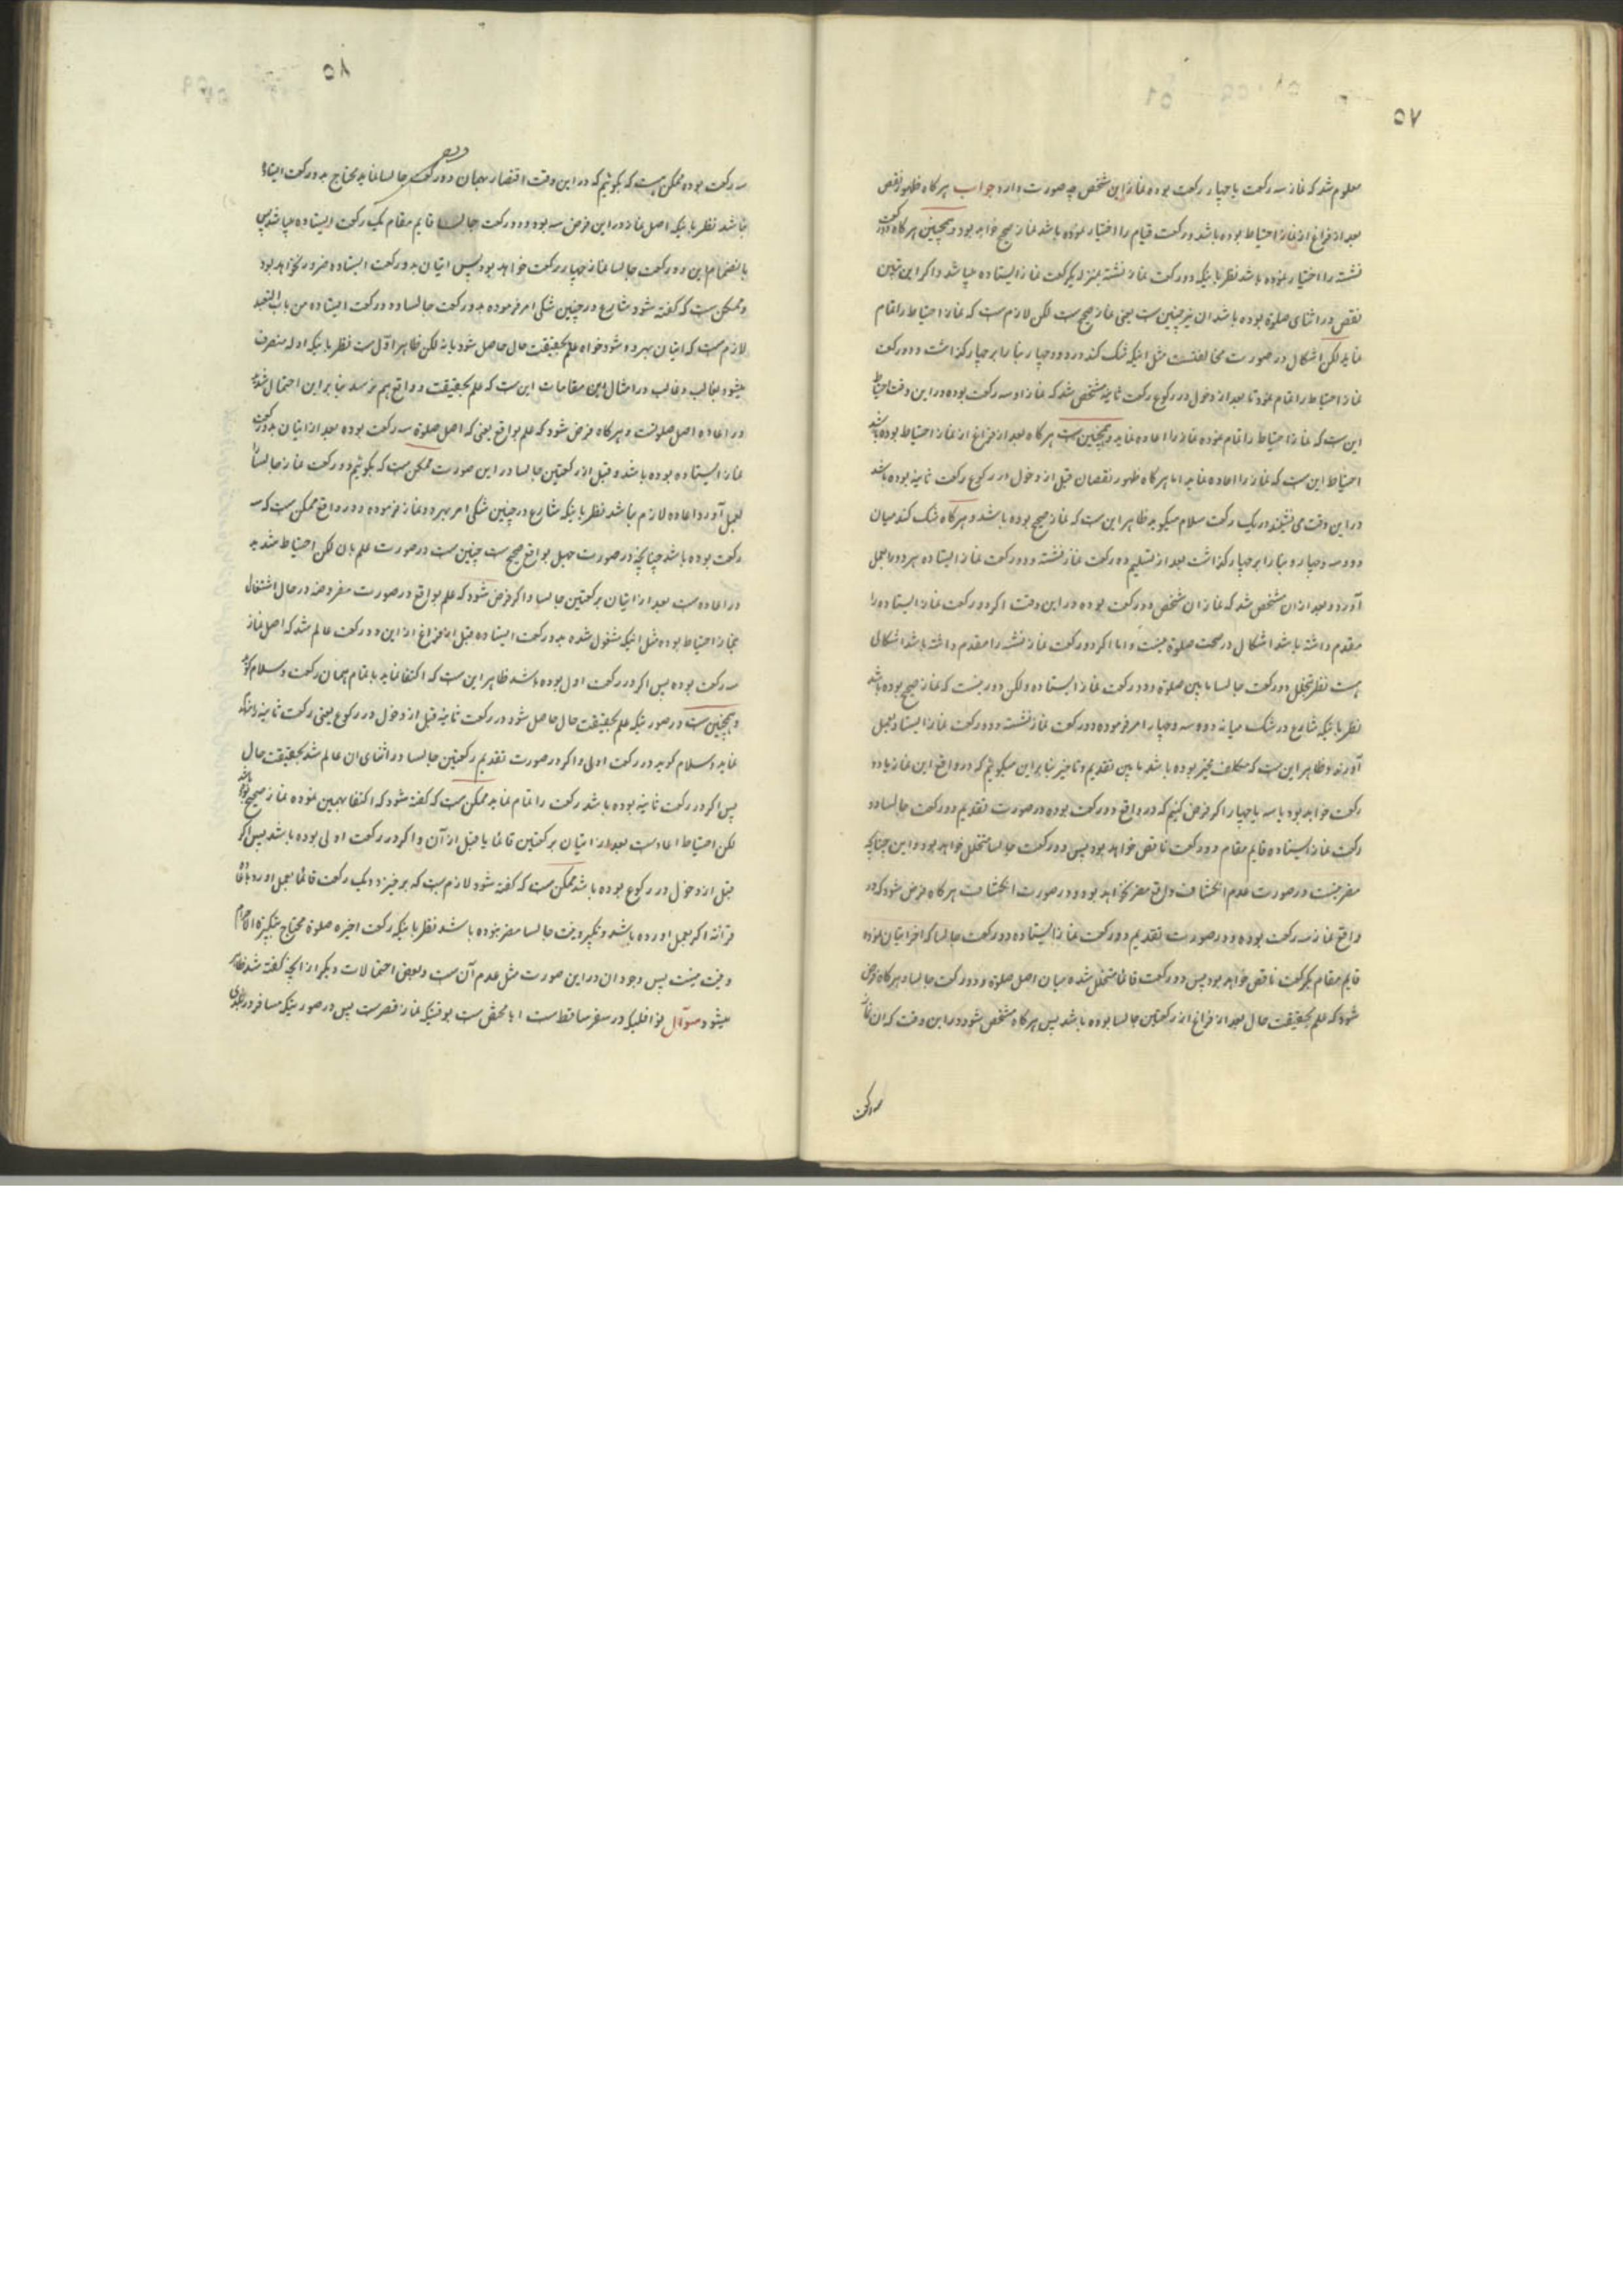 ۵۷
معلوم شد که نماز سه رکعت یا چهار رکعت بوده نماز این شخص چه صورت دارد جواب هرگاه ظهور نقص
بعد از فراغ از نماز احتیاط بوده باشد و رکعت قیام را اختیار نموده باشد نماز صحیح خواهد بود و همچنین هرگاه دو رکعت
نشسته را اختیار نموده باشد نظر باینکه دو رکعت نماز نشسته بمنزله یکرکعت نماز ایستاده میباشد و اگر این تبین
نقص در اثنای صلوة بوده باشد ان نیز چنین است یعنی نماز صحیح است لکن لازم است که نماز احتیاط را تمام
نماید لکن اشکال در صورت مخالفتست مثل اینکه شک کند در دو و چهار بنا را بر چهار گذاشت و دو رکعت
نماز احتیاط را تمام نمود تا بعد از دخول در رکوع رکعت ثانیه مشخص شد که نماز او سه رکعت بوده در این وقت احتیاط
این است که نماز احتیاط را تمام نموده نماز را اعاده نماید و همچنین است هرگاه بعد از فراغ از نماز احتیاط بوده باشد
احتیاط این است که نماز را اعاده نماید اما هرگاه ظهور نقصان قبل از دخول در رکوع رکعت ثانیه بوده باشد
در این وقت می نشیند در یک رکعت سلام میگوید ظاهر این است که نماز صحیح بوده باشد و هرگاه شک کند میان
دو و سه و چهار و بنا را بر چهار گذاشت بعد از تسلیم دو رکعت نماز نشسته و دو رکعت نماز ایستاده هر دو را بعمل
آورد و بعد از ان مشخص شد که نماز ان شخص دو رکعت بوده در این وقت اگر دو رکعت نماز ایستاده را
مقدم داشته باشد اشکال در صحت صلوة نیست و اما اگر دو رکعت نماز نشسته را مقدم داشته باشد اشکالی
هست نظر بتخلل دو رکعت جالسا مابین صلوة و دو رکعت نماز ایستاده و لکن دور نیست که نماز صحیح بوده باشد
نظر باینکه شارع در شک میانه دو و سه و چهار امر فرموده دو رکعت نماز نشسته و دو رکعت نماز ایستاده بعمل
آورند و ظاهر این است که مکلف مخیر بوده باشد مابین تقدیم و تاخیر بنا بر این میگوئیم که در واقع این نماز یا دو
رکعت خواهد بود یا سه یا چهار اگر فرض کنیم که در واقع دو رکعت بوده در صورت تقدیم دو رکعت جالسا دو
رکعت نماز ایستاده قایم مقام دو رکعت ناقص خواهد بود پس دو رکعت جالسا متخلل خواهد بود و این چنانچه
مضر نیست در صورت عدم انکشاف واقع مضر نخواهد بود و در صورت انکشاف هرگاه فرض شود که در
واقع نماز سه رکعت بوده و در صورت تقدیم دو رکعت نماز ایستاده دو رکعت جالسا که اخرا بیان نموده
قایم مقام یکرکعت ناقص خواهد بود پس دو رکعت قائما متخلل شده میان اصل صلوة و دو رکعت جالسا و هرگاه فرض
شود که علم بحقیقت حال بعد از فراغ از رکعتین جالسا بوده باشد پس هرگاه مشخص شود در این وقت که ان نماز
سه رکعت
۵۸
سه رکعت بوده ممکن است که بگوئیم که در این وقت اقتصار بهمان دو رکعت جالسا نماید محتاج بدو رکعت ایستاده
نباشد نظر باینکه اصل نماز در این فرض سه بوده و دو رکعت جالسا قایم مقام یک رکعت ایستاده میباشد پس
بانضمام این دو رکعت جالسا نماز چهار رکعت خواهد بود پس اتیان بدو رکعت ایستاده ضرور نخواهد بود
و ممکن است که گفته شود شارع در چنین شکی امر فرموده بدو رکعت جالسا و دو رکعت ایستاده من باب التعبد
لازم است که اتیان بهر دو شود خواه علم بحقیقت حال حاصل شود یا نه لکن ظاهر اوّل است نظر باینکه ادله منصرف
میشود بغالب و غالب در امثال این مقامات این است که علم بحقیقت و واقع بهم نرسد بنا بر این احتمال شدید
در اعاده اصل صلوتست و هرگاه فرض شود که علم بواقع یعنی که اصل صلوة سه رکعت بوده بعد از اتیان بدو رکعت
نماز ایستاده بوده باشد و قبل از رکعتین جالسا در این صورت ممکن است که بگوئیم دو رکعت نماز جالسا را
بعمل آورد و اعاده لازم نباشد نظر باینکه شارع در چنین شکی امر بهر دو نماز فرموده و در واقع ممکن است که سه
رکعت بوده باشد چنانچه در صورت جهل بواقع صحیح است چنین است در صورت علم بان لکن احتیاط شدید
در اعاده است بعد از اتیان برکعتین جالسا و اگر فرض شود که علم بواقع در صورت مفروضه در حال اشتغال
بنماز احتیاط بوده مثل اینکه مشغول شده بدو رکعت ایستاده قبل از فراغ از این دو رکعت عالم شد که اصل نماز
سه رکعت بوده پس اگر در رکعت اول بوده باشد ظاهر این است که اکتفا نماید باتمام همان رکعت و سلام گوید
و همچنین است در صورتیکه علم بحقیقت حال حاصل شود در رکعت ثانیه قبل از دخول در رکوع یعنی رکعت ثانیه را
نماید و سلام گوید در رکعت اولی و اگر در صورت تقدیم رکعتین جالسا در اثنای ان عالم شد بحقیقت حال
پس اگر در رکعت ثانیه بوده باشد رکعت را تمام نماید ممکن است که گفته شود که اکتفا بهمین نموده نماز صحیح بوده باشد
لکن احتیاط اعادست بعد از اتیان برکعتین قائما یا قبل از آن و اگر در رکعت اولی بوده باشد پس اگر
قبل از دخول در رکوع بوده باشد ممکن است که گفته شود لازم است که برخیزد و یک رکعت قائما بعمل اورد
قرائته اگر بعمل اورده باشد و تکبیر و نیت جالسا مضر نبوده باشد نظر باینکه رکعت اخیره صلوة محتاج بتکبیرة الاحرام
و نیت نیست پس وجود ان در این صورت مثل عدم آن است و بعض احتمالات دیگر از انچه گفته شد ظاهر
میشود سوال نوافلیکه در سفر ساقط است ایا مختص است بوقتیکه نماز قصر است پس در صورتیکه مسافر در